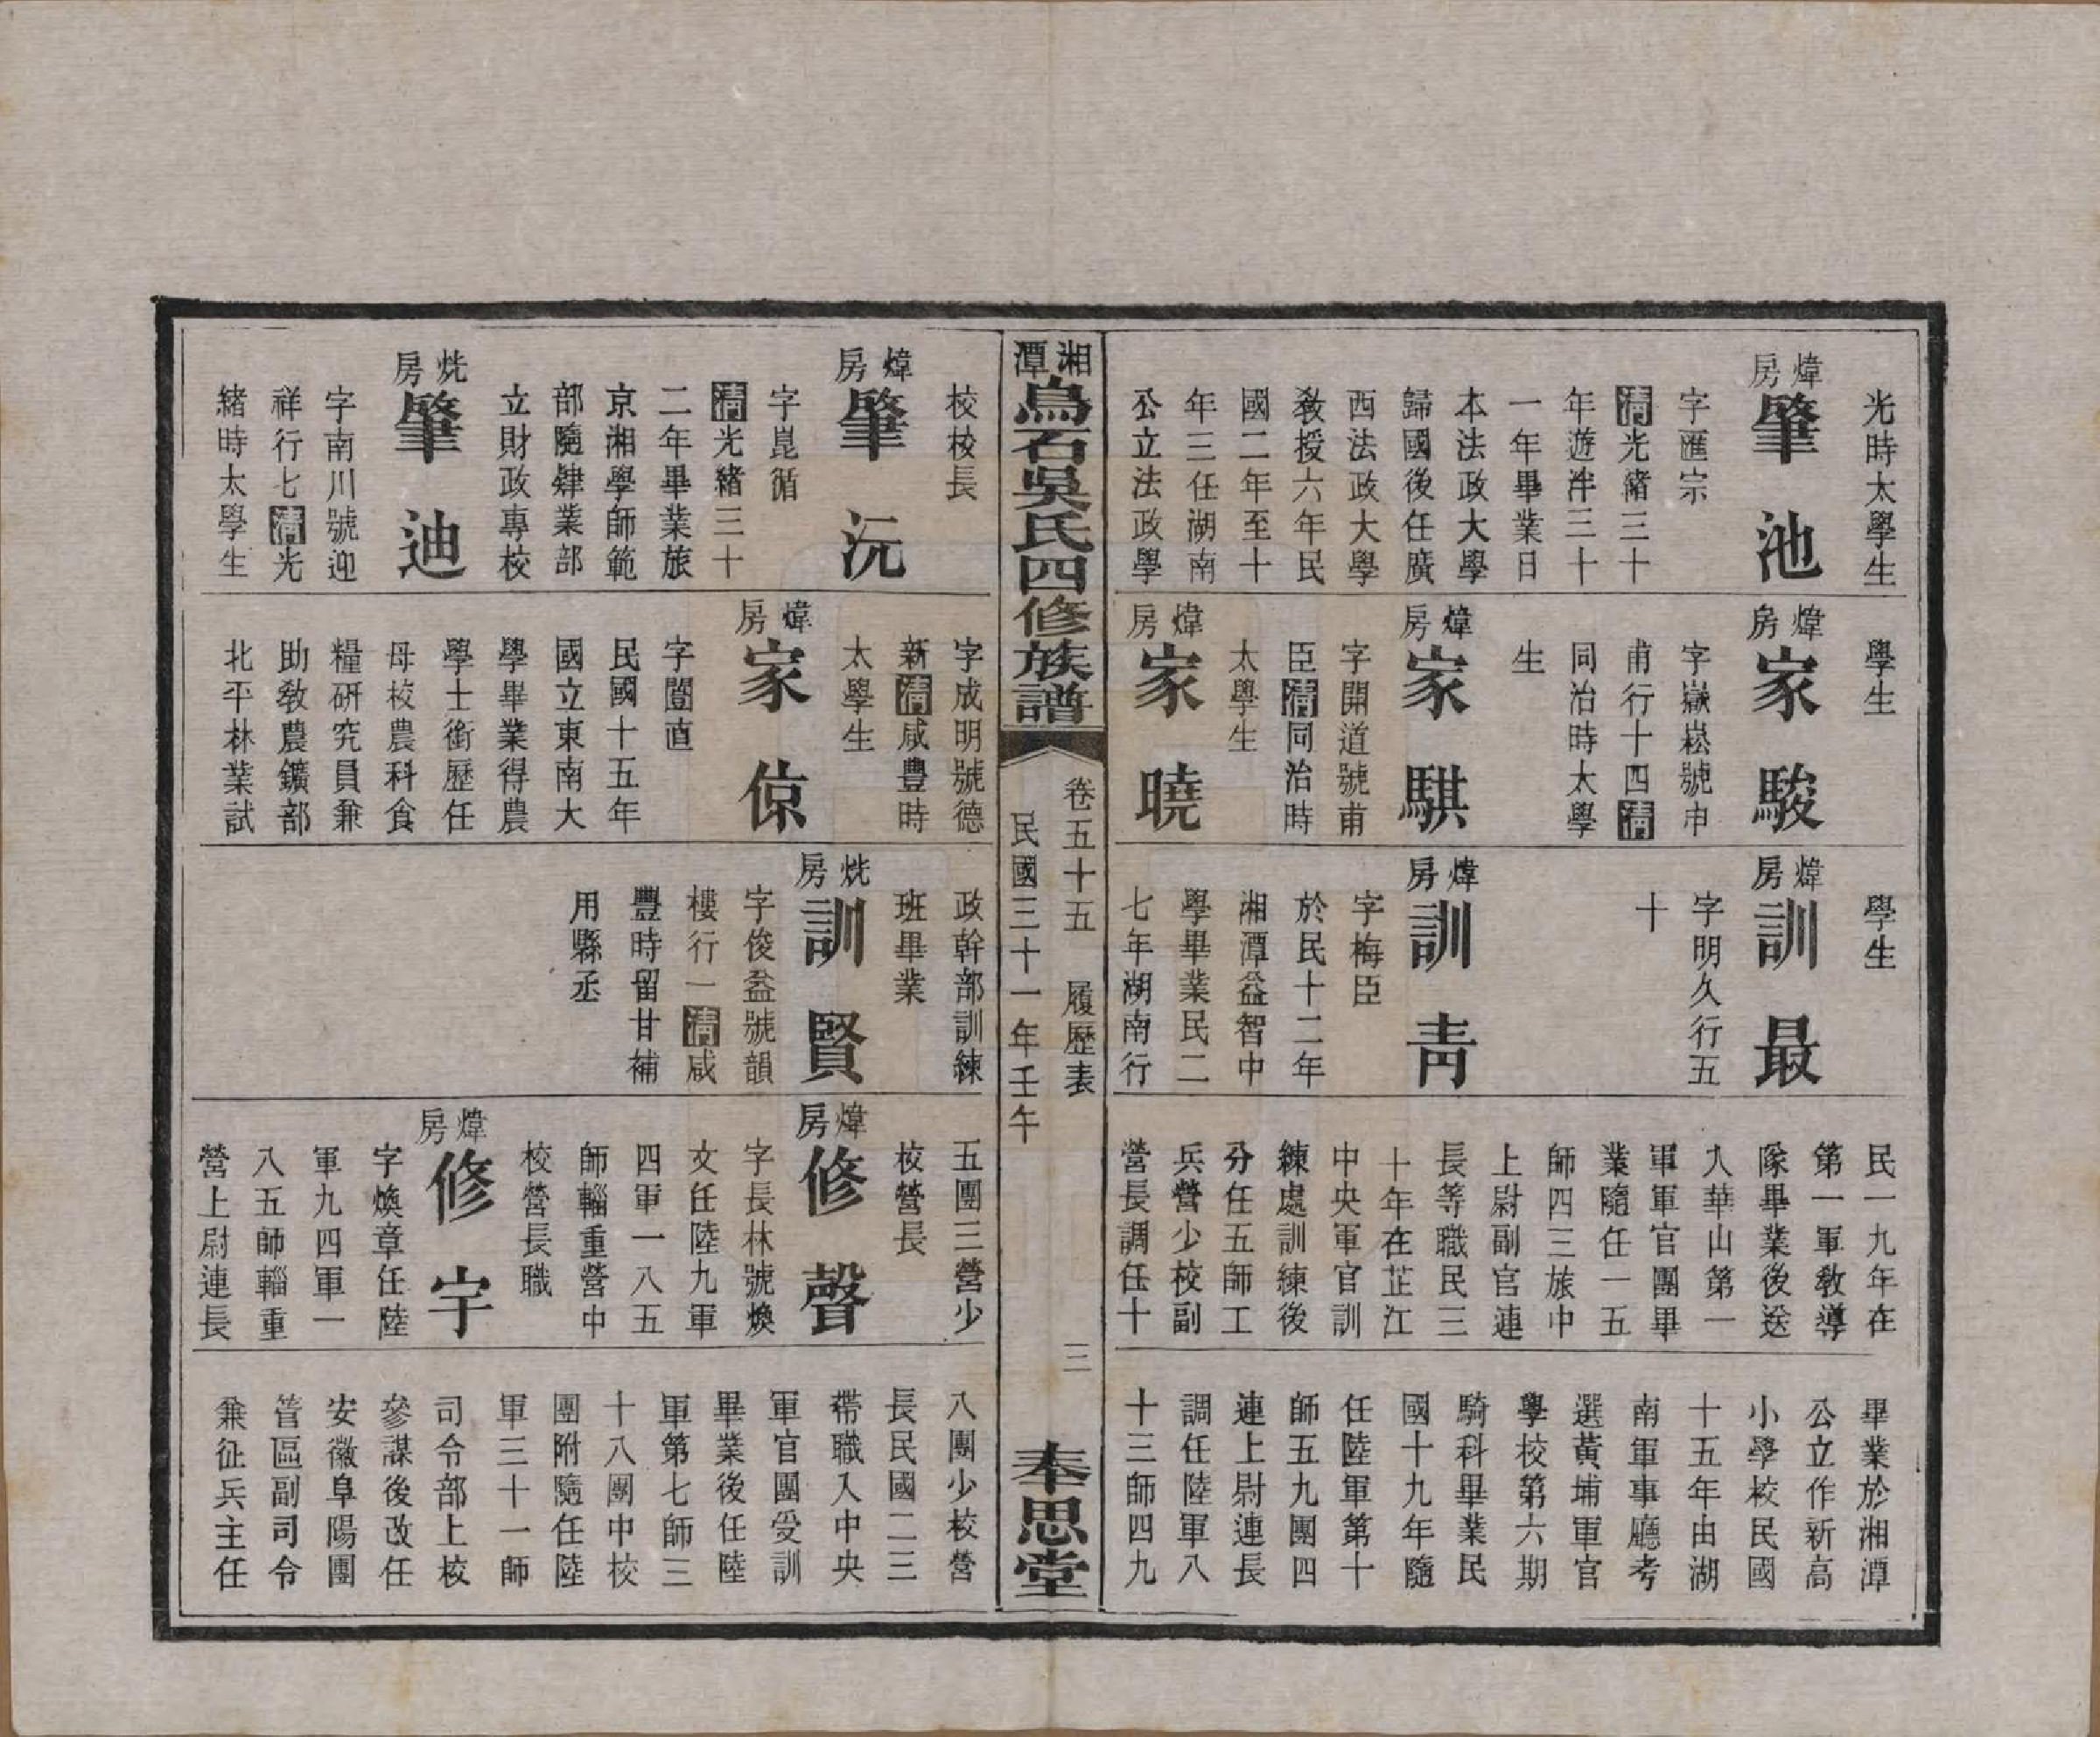 光時太學生
煒房
肇池
字匯宗
清光緒三十
年遊泮三十
一年畢業日
本法政大學
歸國後任廣
西法政大學
教授六年民
國二年至十
年三任湖南
公立法政學
學生
煒房
家駿
字嶽崧號申
甫行十四清
同治時太學
生
煒房
家騏
字開道號甫
臣清同治時
太學生
煒房
家曉
學生
煒房
訓最
字明久行五
十
煒房
訓靑
字梅臣
於民十二年
湘潭益智中
學畢業民二
七年湖南行
民一九年在
第一軍教導
隊畢業後送
入華山第一
軍軍官團畢
業隨任一五
師四三旅中
上尉副官連
長等職民三
十年在芷江
中央軍官訓
練處訓練後
分任五師工
兵營少校副
營長調任十
畢業於湘潭
公立作新高
小學校民國
十五年由湖
南軍事廳考
選黃埔軍官
學校第六期
騎科畢業民
國十九年隨
任陸軍第十
師五九團四
連上尉連長
調任陸軍八
十三師四九
湘潭烏石吳氏四修族譜
卷五十五 履歷表 三
民國三十一年壬午
奉思堂
校校長
煒房
肇沅
字崑循
清光緒三十
二年畢業旅
京湘學師範
部隨肄業部
立財政專校
烍房
肇迪
字南川號迎
祥行七清光
緒時太學生
字成明號德
新清咸豐時
太學生
煒房
家倞
字闓直
民國十五年
國立東南大
學畢業得農
學士銜歷任
母校農科食
糧研究員兼
助教農鑛部
北平林業試
政幹部訓練
班畢業
烍房
訓賢
字俊益號韻
樓行一清咸
豐時留甘補
用縣丞
五團三營少
校營長
煒房
修聲
字長林號煥
文任陸九軍
四軍一八五
師輜重營中
校營長職
煒房
修宇
字煥章任陸
軍九四軍一
八五師輜重
營上尉連長
八團少校營
長民國二三
帶職入中央
軍官團受訓
畢業後任陸
軍第七師三
十八團中校
團附隨任陸
軍三十一師
司令部上校
參謀後改任
安徽阜陽團
管區副司令
兼征兵主任